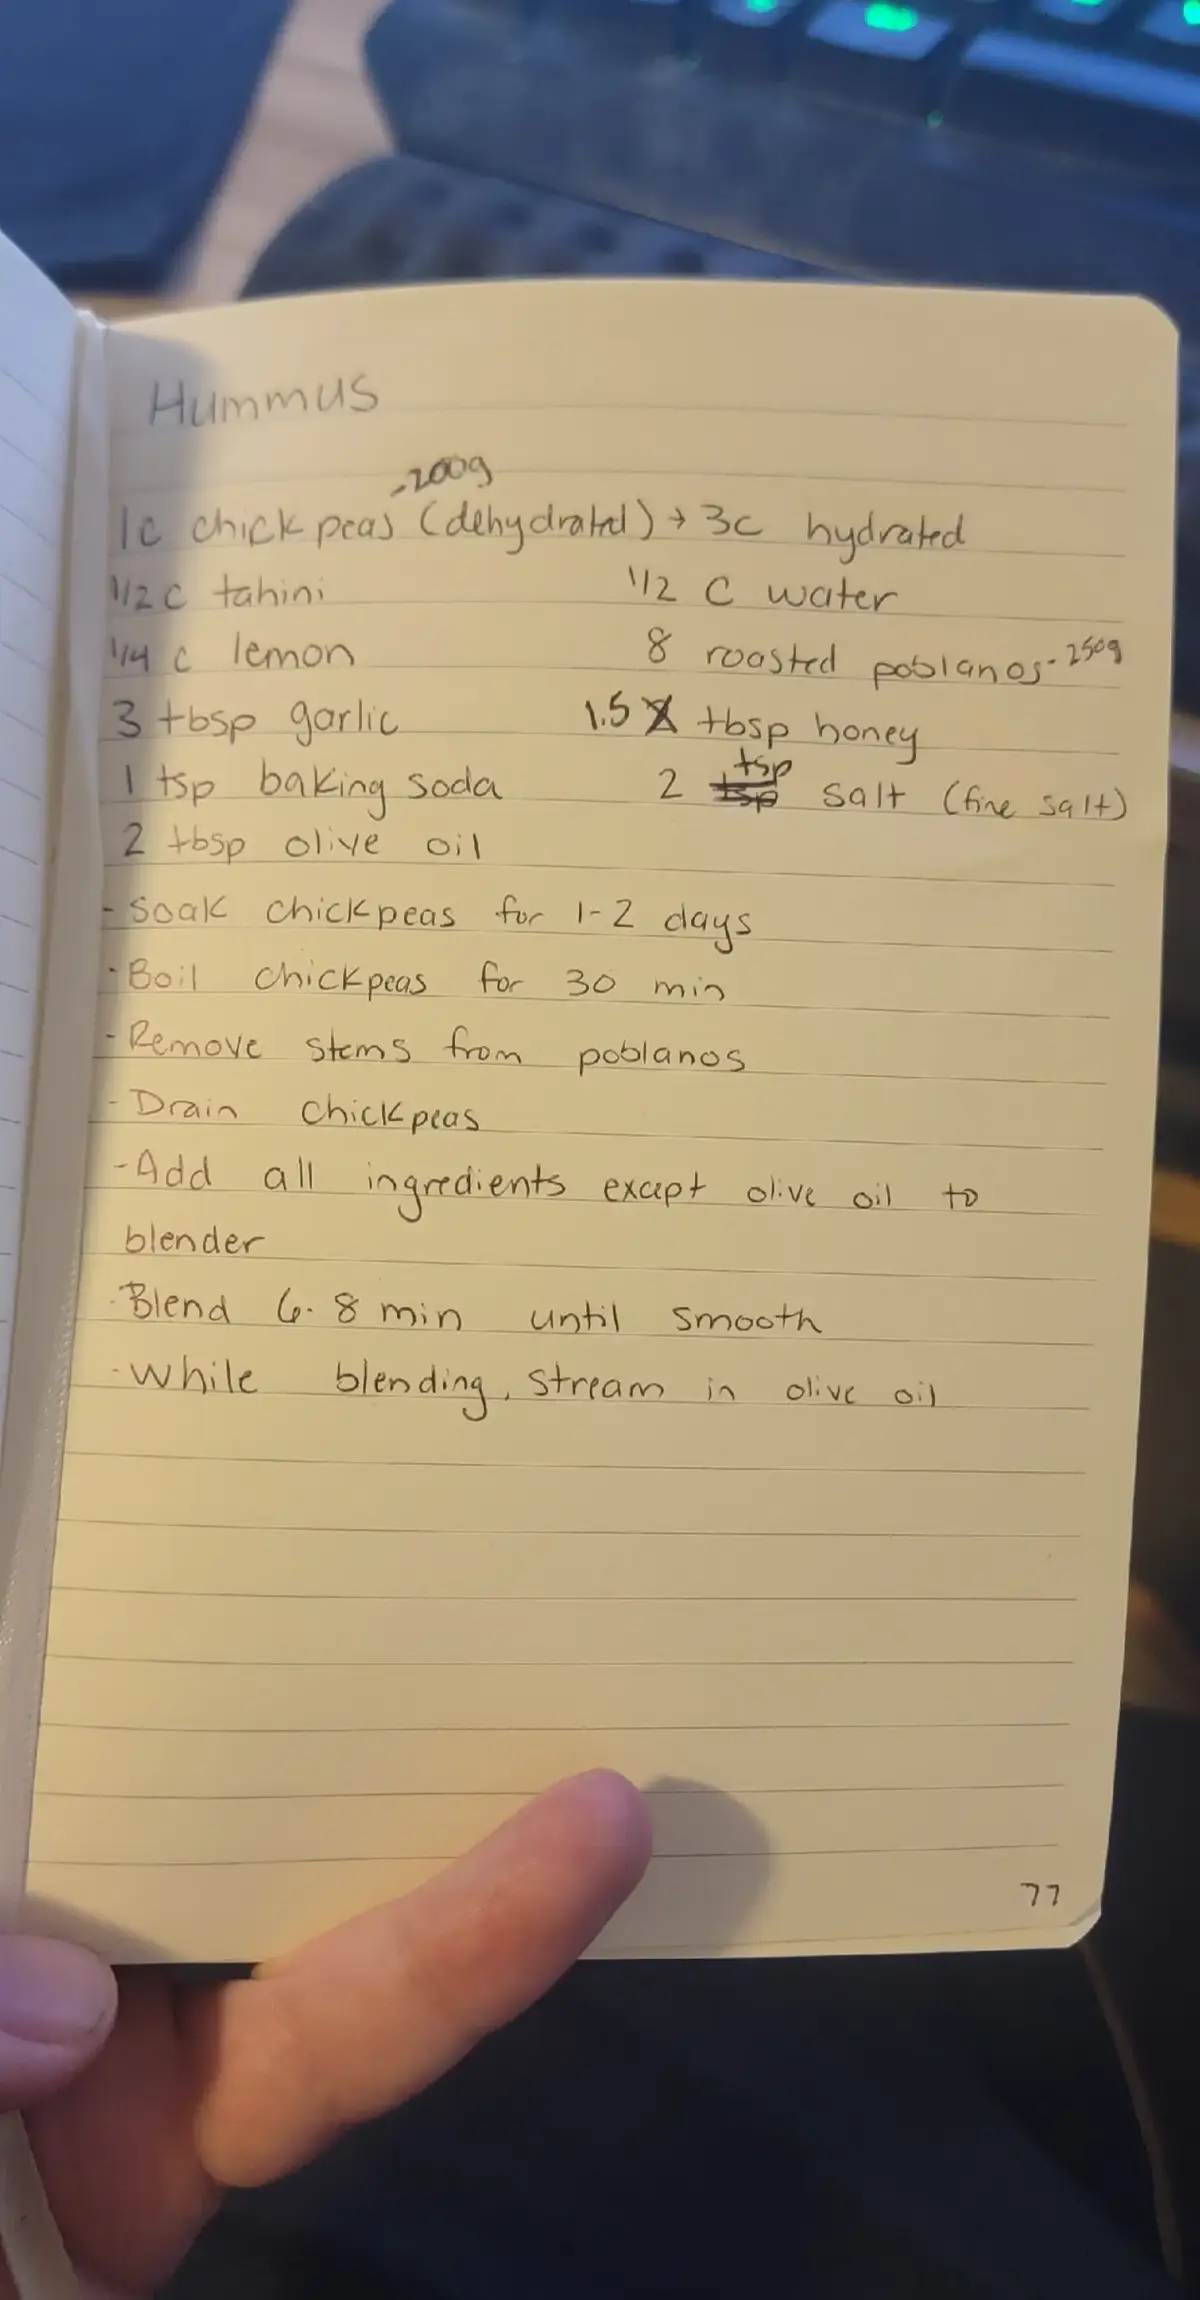 Hummus
-200g
1c chickpeas (dehydrated) → 3c hydrated
1/2 c tahini 1/2 c water
1/4 c lemon 8 roasted poblanos - 250g
3 tbsp garlic 1.5 tbsp honey
1 tsp baking soda 2 tsp salt (fine salt)
2 tbsp olive oil
- Soak chickpeas for 1-2 days
- Boil chickpeas for 30 min
- Remove stems from poblanos
- Drain chickpeas
- Add all ingredients except olive oil to
blender
- Blend 6-8 min until smooth
- While blending, stream in olive oil
77